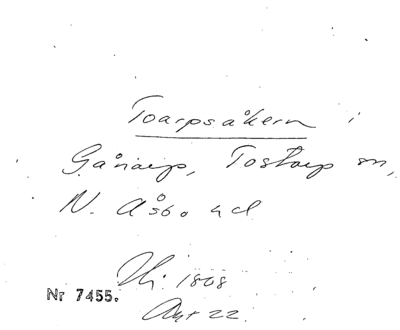 Toarpsåkern i
Gånarp, Tostarp sn,
N. Åsbo hd
Hi. 1808
Akt 22.
Nr 7455.